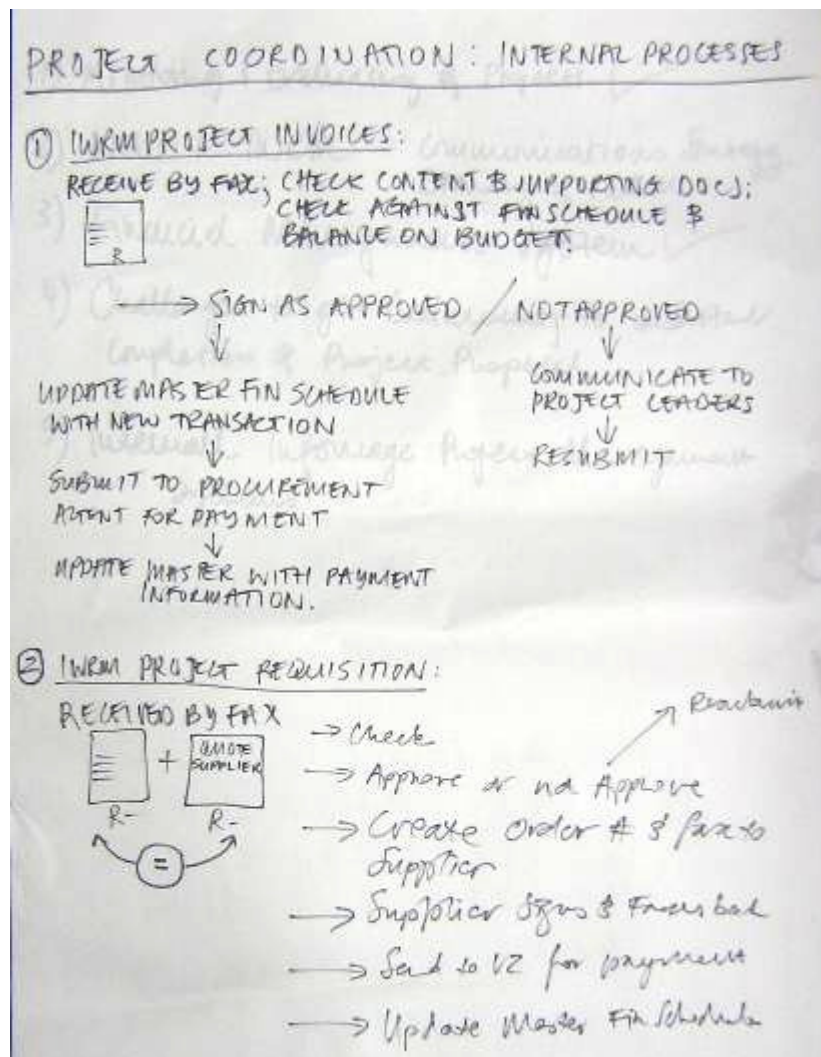 PROJECT COORDINATION: INTERNAL PROCESSES
① IWRM PROJECT INVOICES:
RECEIVE BY FAX; CHECK CONTENT & SUPPORTING DOCS;
CHECK AGAINST FIN SCHEDULE &
BALANCE ON BUDGET.
R
→ SIGN AS APPROVED / NOT APPROVED
↓ ↓
UPDATE MASTER FIN SCHEDULE
WITH NEW TRANSACTION
COMMUNICATE TO
PROJECT LEADERS
↓
RESUBMIT
↓
SUBMIT TO PROCUREMENT
AGENT FOR PAYMENT
↓
UPDATE MASTER WITH PAYMENT
INFORMATION.
② IWRM PROJECT REQUISITION:
RECEIVED BY FAX
+ QUOTE
SUPPLIER
R- R-
=
→ Check
→ Approve or not Approve
→ Create Order # & fax to
Supplier
→ Supplier Signs & Faxes back
→ Send to VZ for payment
→ Update Master Fin Schedule